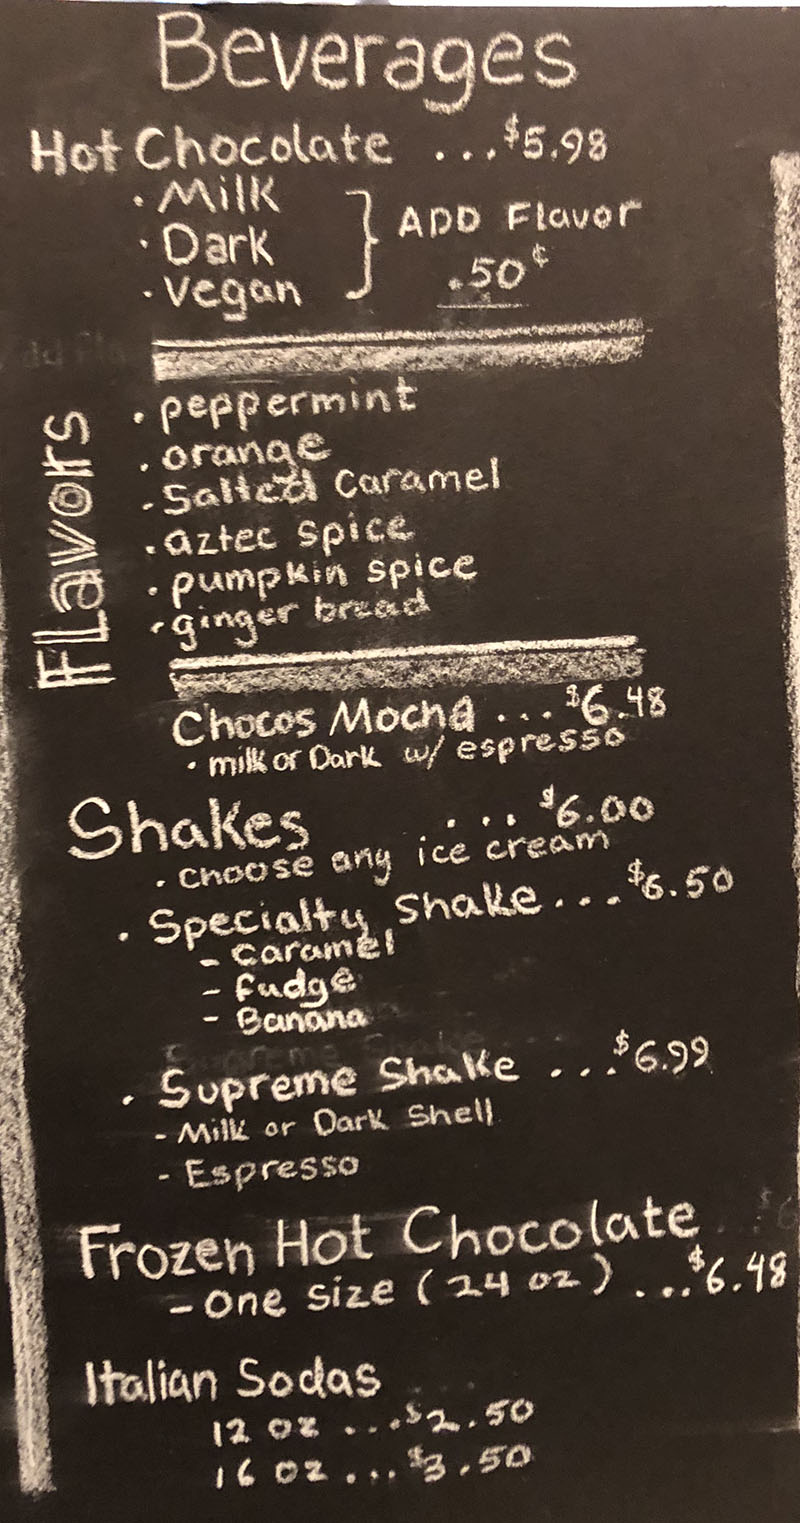 Beverages
Hot Chocolate ... $5.98
• Milk
• Dark
• Vegan
ADD Flavor
.50¢
Flavors
• peppermint
• orange
• Salted Caramel
• aztec spice
• pumpkin spice
• ginger bread
Chocos Mocha ... $6.48
• milk or Dark w/ espresso
Shakes ... $6.00
• choose any ice cream
• Specialty Shake ... $6.50
- Caramel
- Fudge
- Banana
• Supreme Shake ... $6.99
- Milk or Dark Shell
- Espresso
Frozen Hot Chocolate
- One size (24 oz) ... $6.48
Italian Sodas
12 oz ... $2.50
16 oz ... $3.50